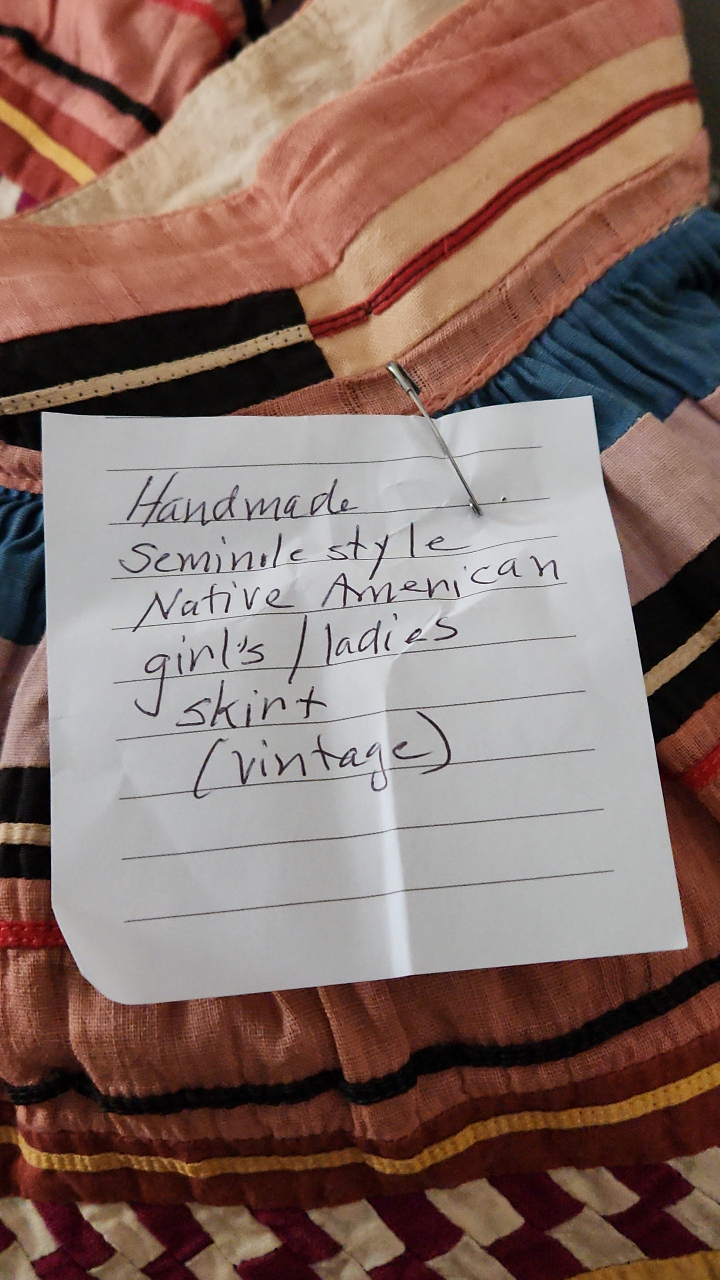 Handmade
Seminole style
Native American
girl's / ladies
skirt
(vintage)